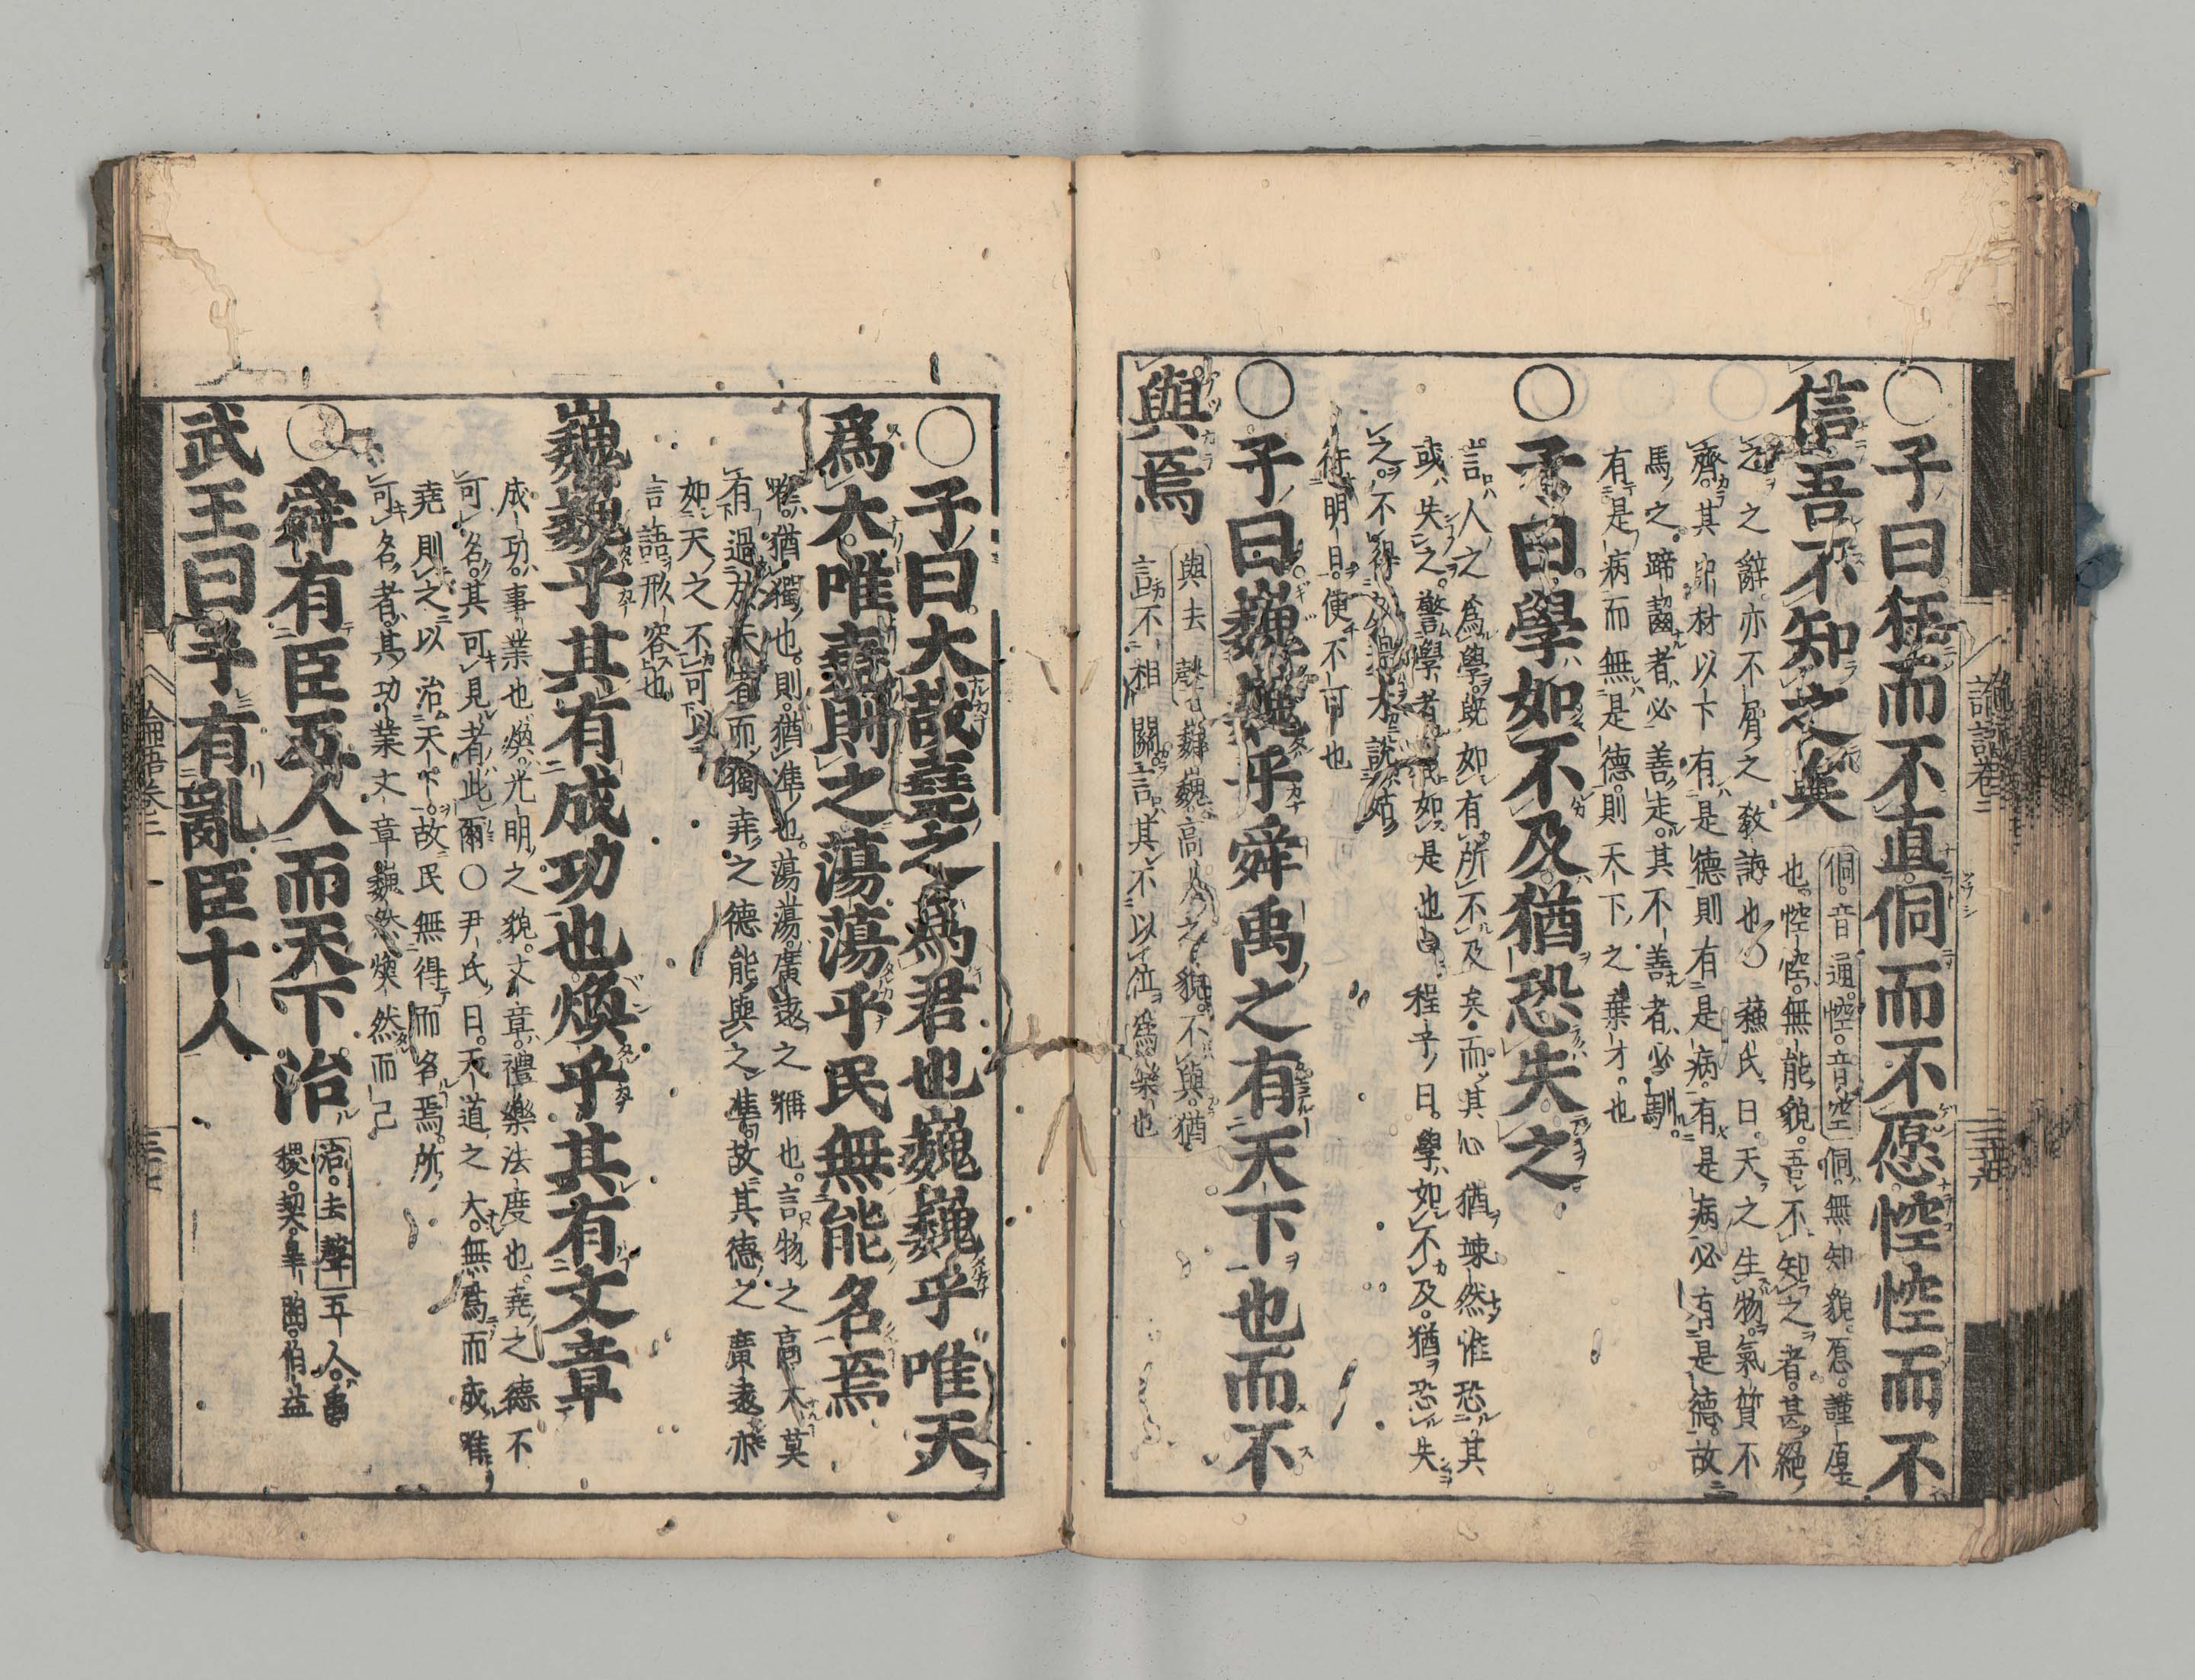 ○子曰狂而不直侗而不愿悾悾而不
信吾不知之矣
侗音通悾音空侗無知貌愿謹厚
也悾悾無能貌吾不知之者甚絶
之之辭亦不屑之教誨也○蘇氏曰天之生物氣質不
齊其中材以下有是德則有是病有是病必有是德故
馬之蹄齧者必善走其不善者必馴
有是病而無是德則天下之棄才也
○子曰學如不及猶恐失之
言人之爲學既如有所不及矣而其心猶竦然惟恐其
或失之警學者當如是也○程子曰學如不及猶恐失
之不得放過才說姑
待明日便不可也
○子曰巍巍乎舜禹之有天下也而不
與焉
與去聲巍巍高大之貌不與猶
言不相關言其不以位爲樂也
○子曰大哉堯之爲君也巍巍乎唯天
爲大唯堯則之蕩蕩乎民無能名焉
唯猶獨也則猶準也蕩蕩廣遠之稱也言物之高大莫
有過於天者而獨堯之德能與之準故其德之廣遠亦
如天之不可以
言語形容也
巍巍乎其有成功也煥乎其有文章
成功事業也煥光明之貌文章禮樂法度也堯之德不
可名其可見者此爾○尹氏曰天道之大無爲而成唯
堯則之以治天下故民無得而名焉所
可名者其功業文章巍然煥然而已
○舜有臣五人而天下治
治去聲五人禹
稷契皐陶伯益
武王曰予有亂臣十人
論語卷二